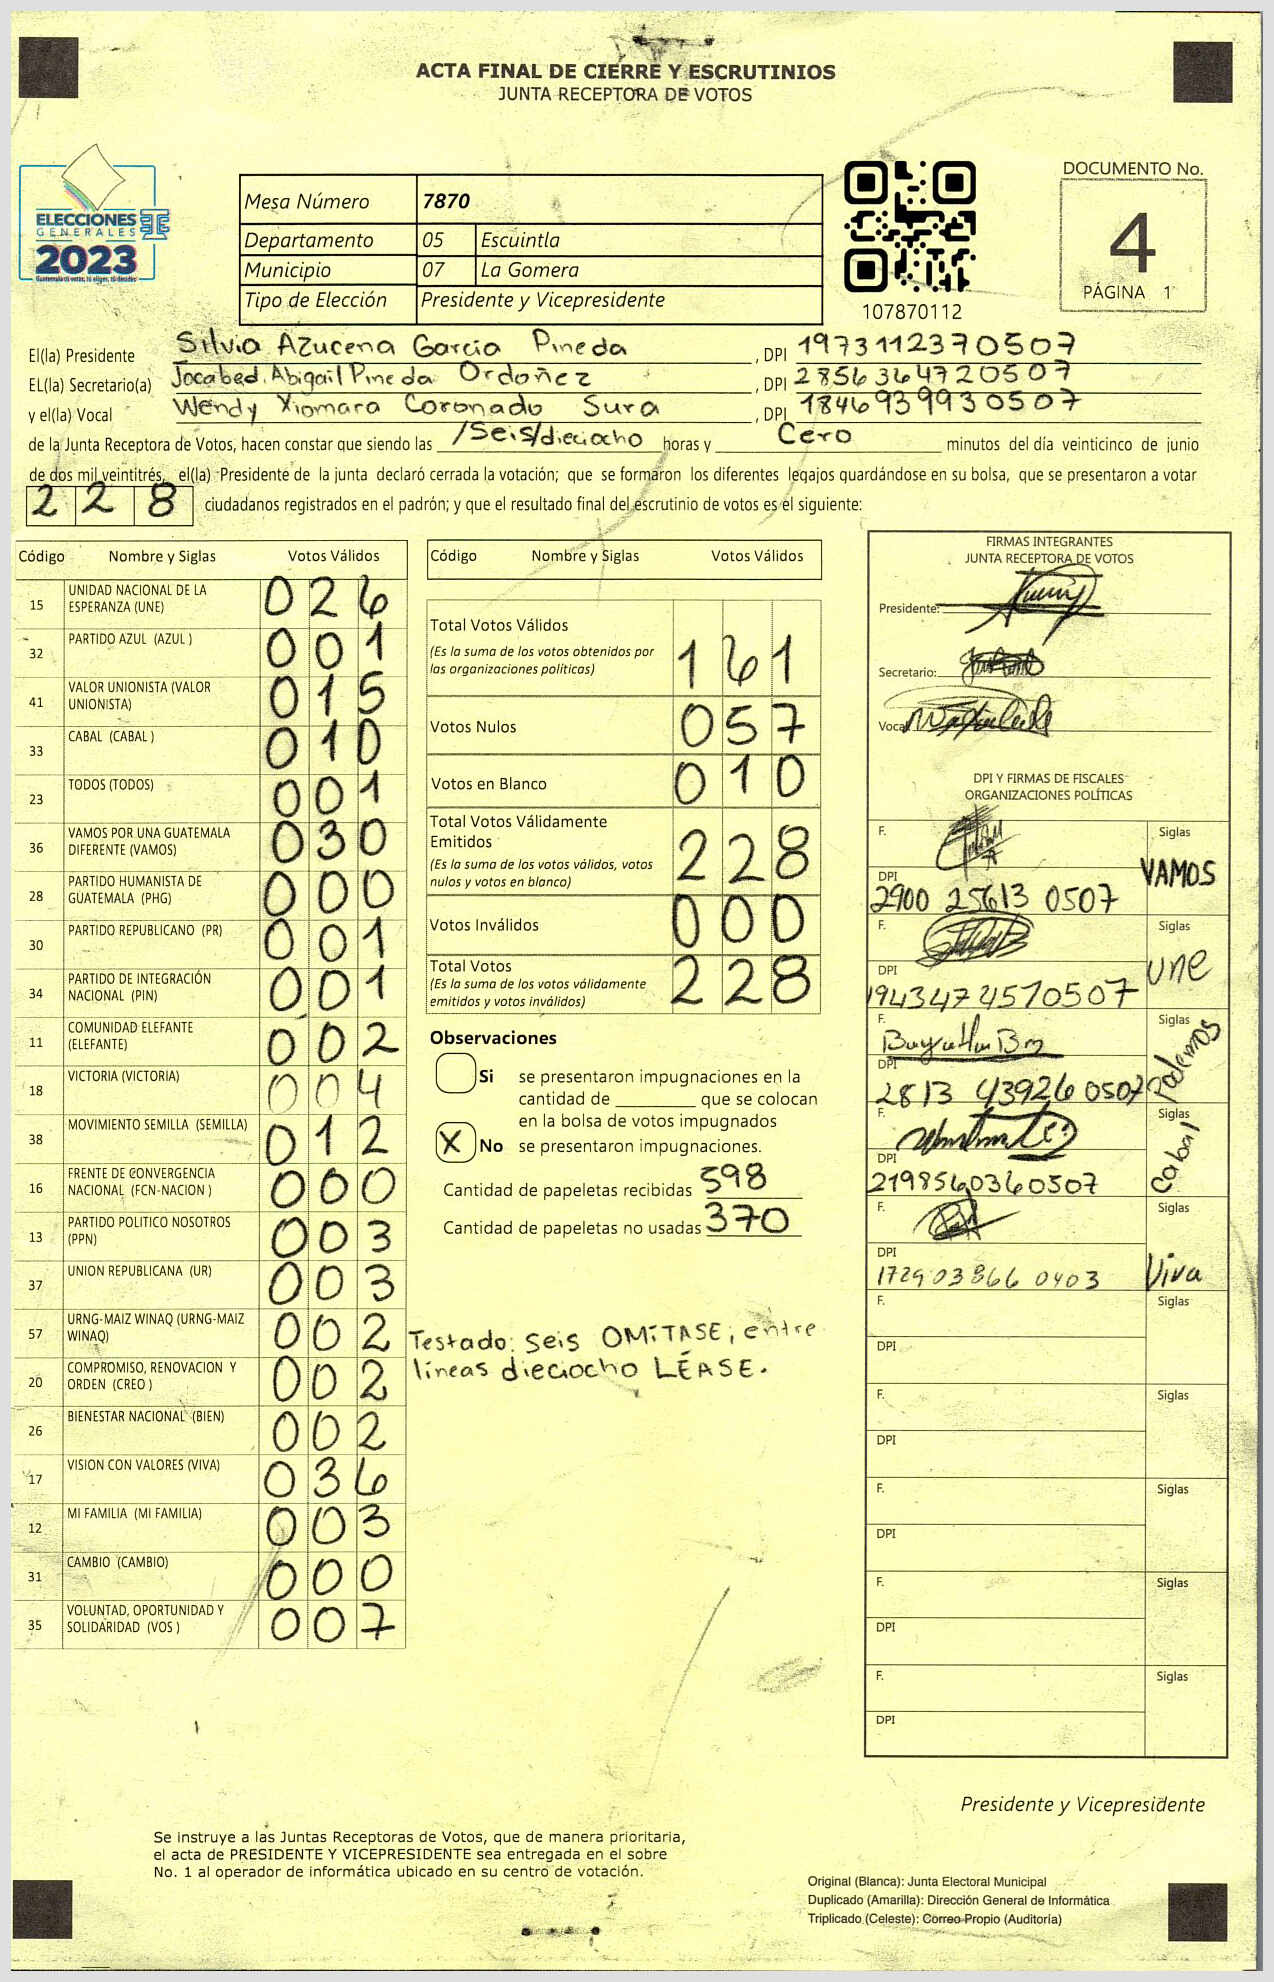 ACTA FINAL DE CIERRE Y ESCRUTINIOS
JUNTA RECEPTORA DE VOTOS
ELECCIONES
GENERALES
2023
Guatemala tú votas, tú eliges, tú decides
Mesa Número 7870
Departamento 05 Escuintla
Municipio 07 La Gomera
Tipo de Elección Presidente y Vicepresidente
107870112
DOCUMENTO No.
4
PÁGINA 1
El(la) Presidente Silvia Azucena Garcia Pineda, DPI 1973112370507
EL(la) Secretario(a) Jocabed Abigail Pineda Ordoñez, DPI 2856364720507
y el(la) Vocal Wendy Xiomara Coronado Sura, DPI 1846939930507
de la Junta Receptora de Votos, hacen constar que siendo las /Seis/dieciocho horas y Cero minutos del día veinticinco de junio
de dos mil veintitrés, el(la) Presidente de la junta declaró cerrada la votación; que se formaron los diferentes legajos guardándose en su bolsa, que se presentaron a votar
228 ciudadanos registrados en el padrón; y que el resultado final del escrutinio de votos es el siguiente:
Código Nombre y Siglas Votos Válidos
15 UNIDAD NACIONAL DE LA ESPERANZA (UNE) 026
32 PARTIDO AZUL (AZUL ) 001
41 VALOR UNIONISTA (VALOR UNIONISTA) 015
33 CABAL (CABAL ) 010
23 TODOS (TODOS) 001
36 VAMOS POR UNA GUATEMALA DIFERENTE (VAMOS) 030
28 PARTIDO HUMANISTA DE GUATEMALA (PHG) 000
30 PARTIDO REPUBLICANO (PR) 001
34 PARTIDO DE INTEGRACIÓN NACIONAL (PIN) 001
11 COMUNIDAD ELEFANTE (ELEFANTE) 002
18 VICTORIA (VICTORIA) 004
38 MOVIMIENTO SEMILLA (SEMILLA) 012
16 FRENTE DE CONVERGENCIA NACIONAL (FCN-NACION ) 000
13 PARTIDO POLITICO NOSOTROS (PPN) 003
37 UNION REPUBLICANA (UR) 003
57 URNG-MAIZ WINAQ (URNG-MAIZ WINAQ) 002
20 COMPROMISO, RENOVACION Y ORDEN (CREO ) 002
26 BIENESTAR NACIONAL (BIEN) 002
17 VISION CON VALORES (VIVA) 036
12 MI FAMILIA (MI FAMILIA) 003
31 CAMBIO (CAMBIO) 000
35 VOLUNTAD, OPORTUNIDAD Y SOLIDARIDAD (VOS ) 007
Código Nombre y Siglas Votos Válidos
Total Votos Válidos 161
(Es la suma de los votos obtenidos por
las organizaciones políticas)
Votos Nulos 057
Votos en Blanco 010
Total Votos Válidamente
Emitidos 228
(Es la suma de los votos válidos, votos
nulos y votos en blanco)
Votos Inválidos 000
Total Votos 228
(Es la suma de los votos válidamente
emitidos y votos inválidos)
Observaciones
Si se presentaron impugnaciones en la
cantidad de ________ que se colocan
en la bolsa de votos impugnados
X No se presentaron impugnaciones.
Cantidad de papeletas recibidas 598
Cantidad de papeletas no usadas 370
Testado: seis OMÍTASE, entre
líneas dieciocho LÉASE.
FIRMAS INTEGRANTES
JUNTA RECEPTORA DE VOTOS
Presidente:
Secretario:
Vocal
DPI Y FIRMAS DE FISCALES
ORGANIZACIONES POLÍTICAS
F. Siglas
VAMOS
DPI
2900 25613 0507
F. Siglas
une
DPI
1943474570507
F. Siglas
Podemos
DPI
2813 43926 0507
F. Siglas
Cabal
DPI
2198560360507
F. Siglas
Viva
DPI
172903866 0403
F. Siglas
DPI
F. Siglas
DPI
F. Siglas
DPI
F. Siglas
DPI
F. Siglas
DPI
Presidente y Vicepresidente
Se instruye a las Juntas Receptoras de Votos, que de manera prioritaria,
el acta de PRESIDENTE Y VICEPRESIDENTE sea entregada en el sobre
No. 1 al operador de informática ubicado en su centro de votación.
Original (Blanca): Junta Electoral Municipal
Duplicado (Amarilla): Dirección General de Informática
Triplicado (Celeste): Correo Propio (Auditoría)